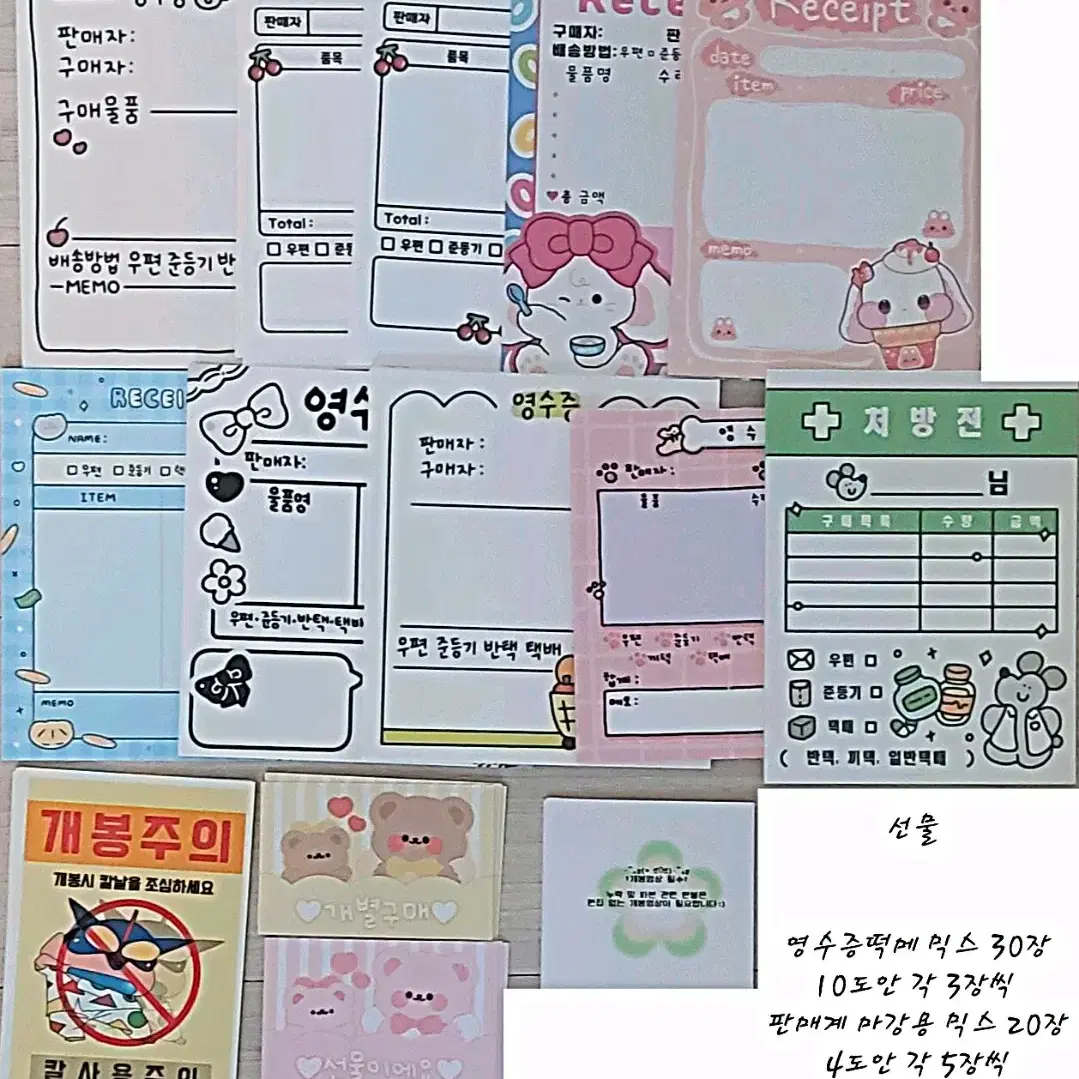 영수증
판매자:
구매자:
구매물품
배송방법 우편 준등기 반
MEMO
판매자
품목
Total:
우편 준등
판매자
품목
Total:
우편 준등기
Rece
구매자: 판
배송방법: 우편 준등
물품명 수
총 금액
Receipt
date
item price
memo
RECEI
NAME:
우편 준등기 택
ITEM
MEMO
영수
판매자:
물품명
우편·준등기·반택·택배
영수증
판매자:
구매자:
우편 준등기 반택 택배
영수
판매자:
물품 수
우편 준등기 반택
끼택 택배
합계:
메모:
처방전
님
구매목록 수량 금액
우편
준등기
택배
( 반택, 끼택, 일반택배 )
개봉주의
개봉시 칼날을 조심하세요
칼사용주의
개별구매
선물이에요
개봉영상 필수!
누락 및 파손 관련 문들은
편집 없는 개봉영상이 필요합니다:)
선물
영수증떡메 믹스 30장
10도안 각 3장씩
판매계 마감용 믹스 20장
4도안 각 5장씩